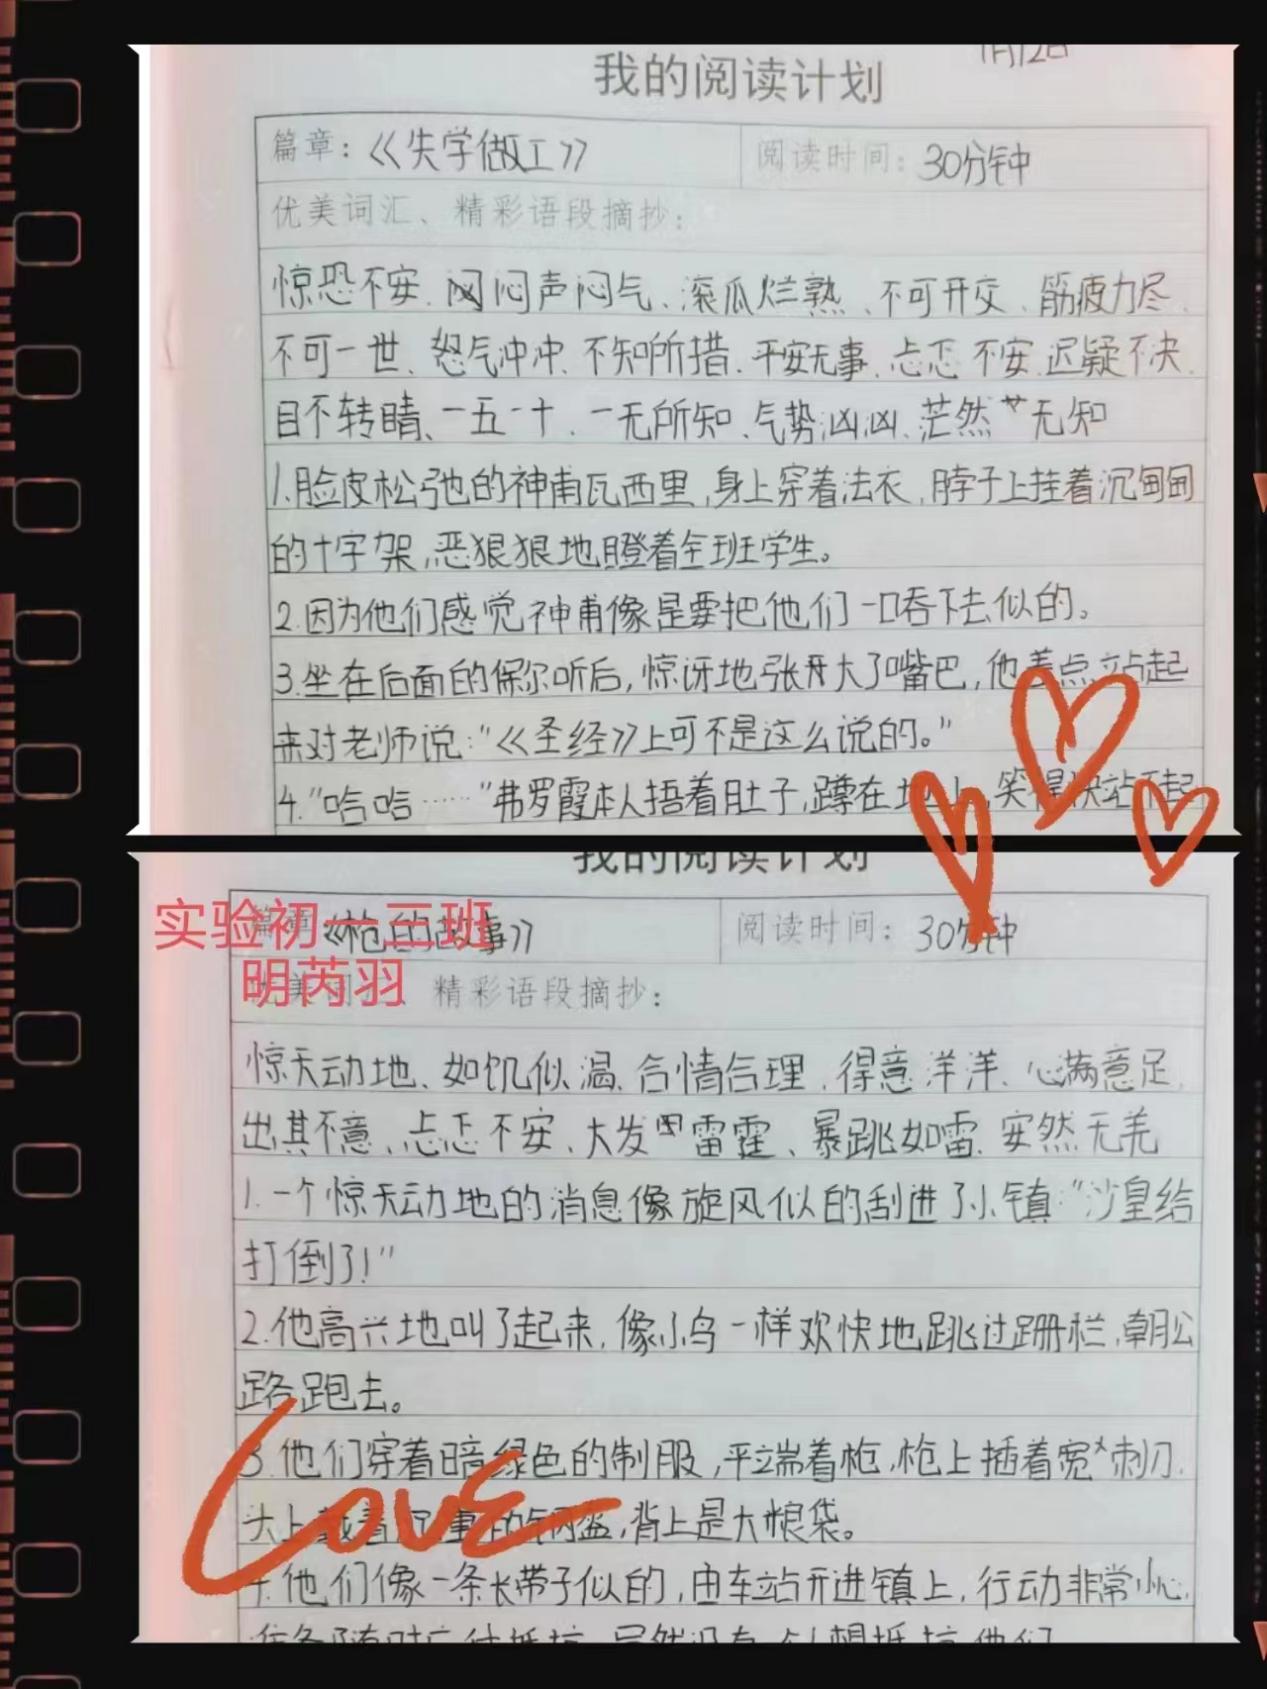 1月12日
我的阅读计划
篇章：《失学做工》 阅读时间：30分钟
优美词汇、精彩语段摘抄：
惊恐不安、闷声闷气、滚瓜烂熟、不可开交、筋疲力尽、
不可一世、怒气冲冲、不知所措、平安无事、忐忑不安、迟疑不决、
目不转睛、一五一十、一无所知、气势汹汹、茫然无知
1.脸皮松弛的神甫瓦西里，身上穿着法衣，脖子上挂着沉甸甸
的十字架，恶狠狠地瞪着全班学生。
2.因为他们感觉神甫像是要把他们一口吞下去似的。
3.坐在后面的保尔听后，惊讶地张开大了嘴巴，他差点站起
来对老师说："《圣经》上可不是这么说的。"
4."哈哈……"弗罗霞本人捂着肚子，蹲在地上，笑得快站不起
我的阅读计划
实验初一三班
明芮羽
篇章：《枪的故事》 阅读时间：30分钟
优美词汇、精彩语段摘抄：
惊天动地、如饥似渴、合情合理、得意洋洋、心满意足、
出其不意、忐忑不安、大发雷霆、暴跳如雷、安然无恙
1.一个惊天动地的消息像旋风似的刮进了小镇："沙皇给
打倒了！"
2.他高兴地叫了起来，像小鸟一样欢快地跳过跚栏，朝公
路跑去。
3.他们穿着暗绿色的制服，平端着枪，枪上插着宽刺刀，
头上戴着沉重的钢盔，背上是大粮袋。
4.他们像一条长带子似的，由车站开进镇上，行动非常小心，
Love